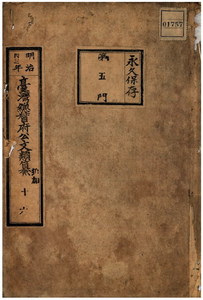 01757
永久保存
第五門
明治
臺灣總督府公文類纂
十六